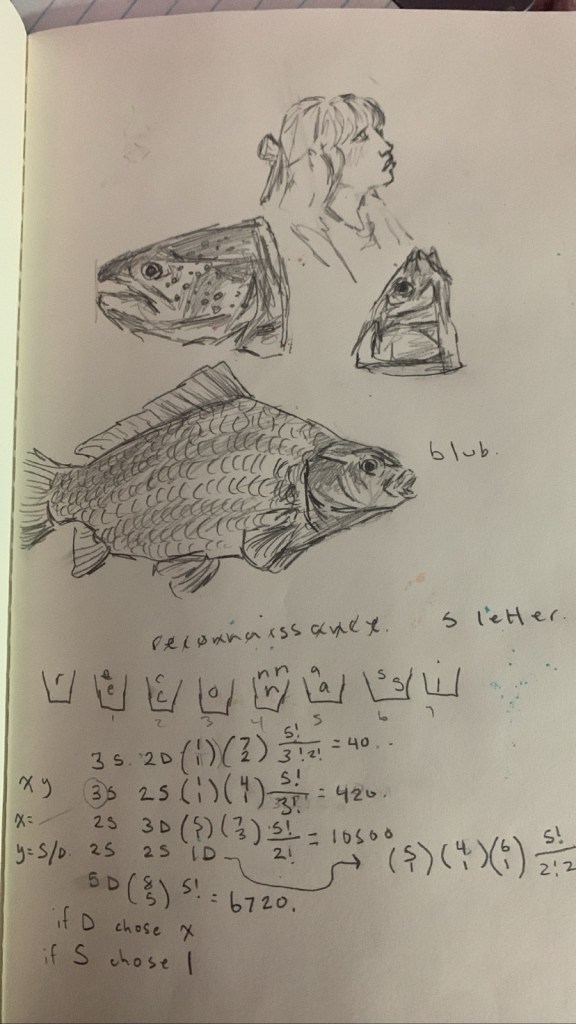 blub.
reconnaissance. 5 letter.
r e e c c o n n n a a s s i
1 2 3 4 5 6 7
3S. 2D (1 1) (7 2) 5!/3!2! = 40..
x y 3S 2S (1 1) (4 1) 5!/3! = 420.
x= 2S 3D (5 1) (7 3) 5!/2! = 10500
y=S/D. 2S 2S 1D → (5 1) (4 1) (6 1) 5!/2!2
5D (8 5) 5! = 6720.
if D chose x
if S chose 1